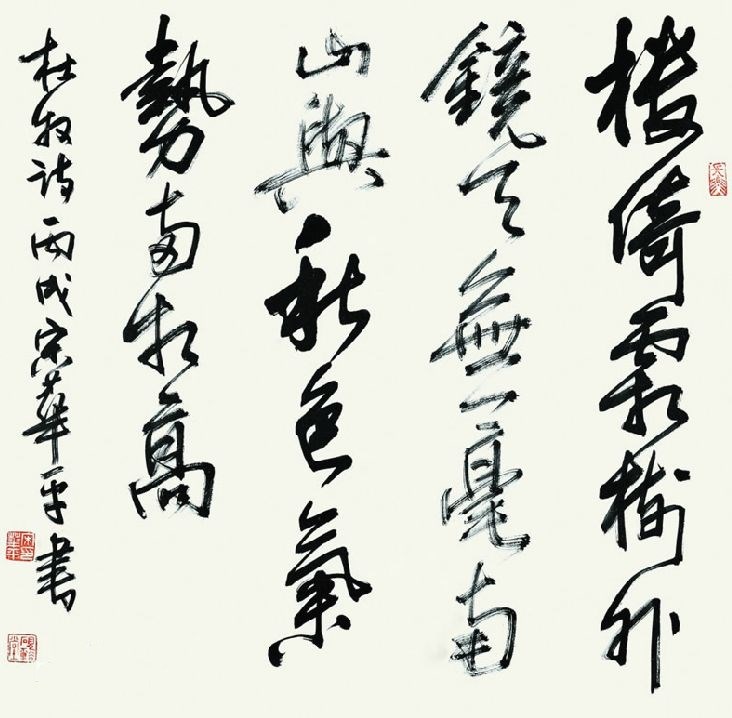 楼倚霜树外
鏡天無一毫南
山與秋色氣
勢両相高
杜牧詩丙戌宋華平書